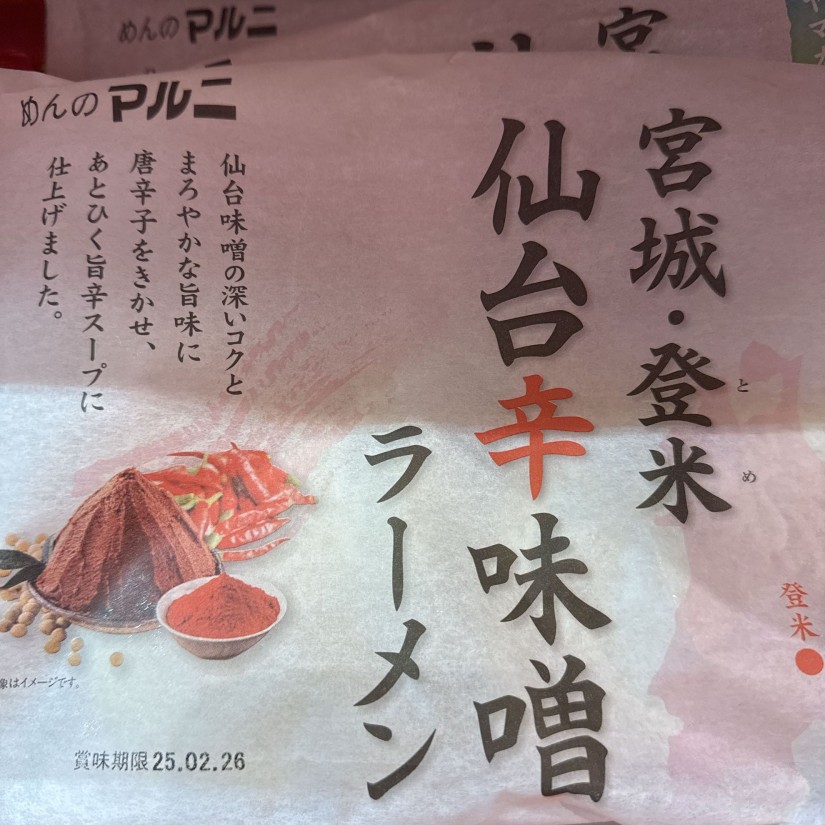 めんの マルニ
宮
めんの マルニ
宮城・登米
とめ
仙台辛味噌
ラーメン
仙台味噌の深いコクと
まろやかな旨味に
唐辛子をきかせ、
あとひく旨辛スープに
仕上げました。
登米
象はイメージです。
賞味期限 25.02.26